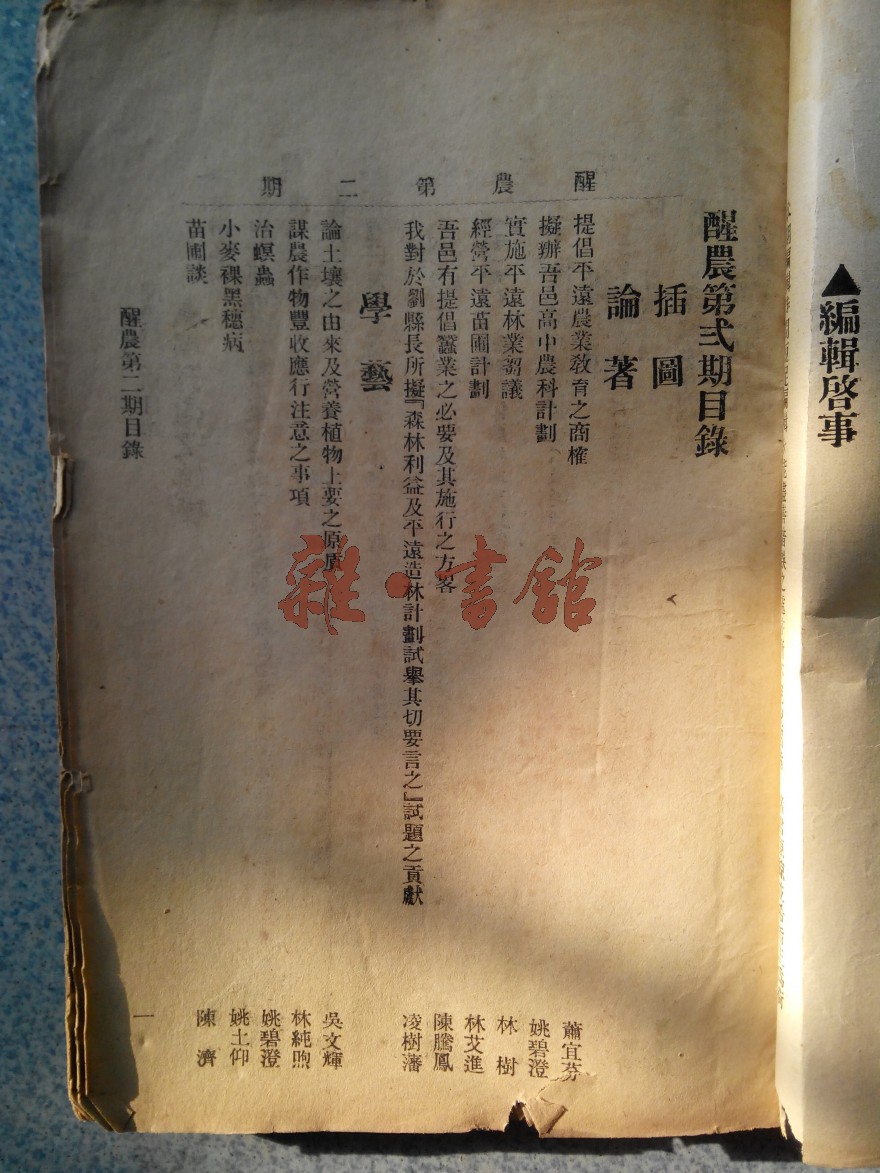 ▲編輯啓事
醒農第二期
醒農第弍期目錄
插圖
論著
提倡平遠農業教育之商榷 蕭宜芬
擬辦吾邑高中農科計劃 姚碧澄
實施平遠林業芻議 林樹
經營平遠苗圃計劃 林艾進
吾邑有提倡蠶業之必要及其施行之方畧 陳騰鳳
我對於劉縣長所擬『森林利益及平遠造林計劃試舉其切要言之』試題之貢獻 凌樹藩
學藝
論土壤之由來及營養植物上要之原質 吳文輝
謀農作物豐收應行注意之事項 林純煦
治螟蟲 姚碧澄
小麥裸黑穗病 姚士仰
苗圃談 陳濟
醒農第二期目錄
一
雜·書館